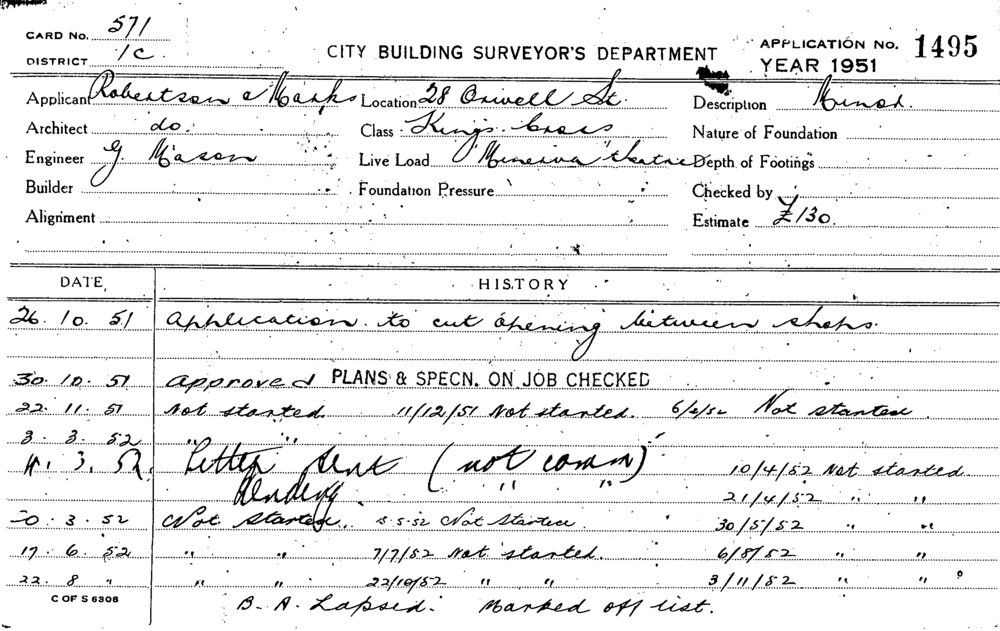 CARD No. 571
DISTRICT 1C
CITY BUILDING SURVEYOR'S DEPARTMENT
APPLICATION No. 1495
YEAR 1951
Applicant Robertson & Marks Location 28 Orwell St. Description Minor.
Architect do. Class Kings Cross Nature of Foundation
Engineer G Mason Live Load "Minerva" theatre Depth of Footings
Builder Foundation Pressure Checked by
Alignment Estimate £130.
DATE HISTORY
26.10.51 Application to cut opening between shops.
30.10.51 Approved PLANS & SPECN. ON JOB CHECKED
22.11.51 Not started. 11/12/51 Not started. 6/2/52 Not started.
3.3.52 " "
3.52. Letter sent (not comm) 10/4/52 Not started.
Pending " " 21/4/52 " "
3.52 Not Started. 5.5.52 Not Started. 30/5/52 " "
17.6.52 " " 7/7/52 Not started. 6/8/52 " "
22.8 " " " 22/10/52 " " 3/11/52 " "
C OF S 6308
B.A. Lapsed. Marked off list.